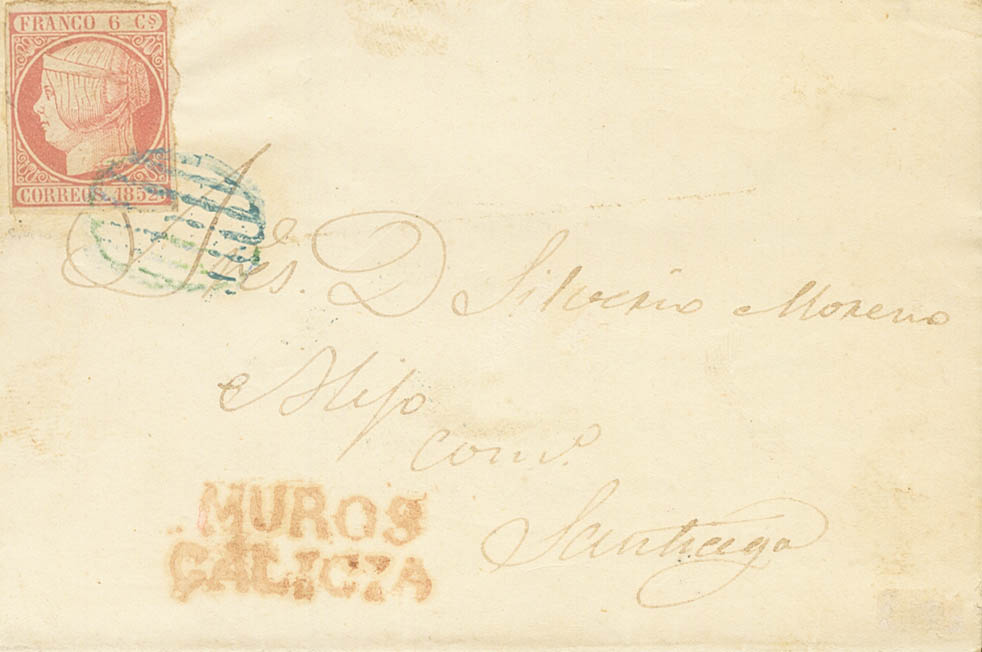 FRANCO 6 Cs
CORREOS 1852
Sres. D Silverio Moreno
é Hijo
Santiago
MUROS
GALICIA